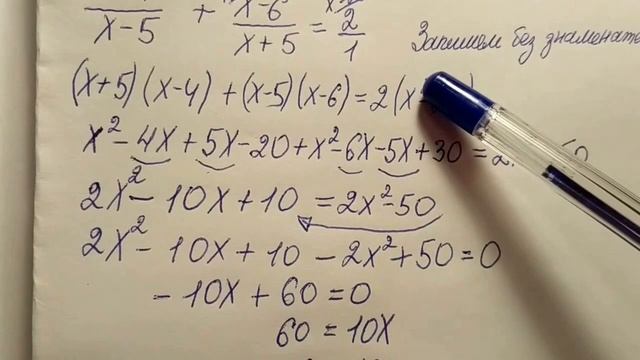 x-5 + x-6 / x+5 = 2 / 1
Запишем без знаменате
(x+5)(x-4)+(x-5)(x-6)=2(x
x²-4x+5x-20+x²-6x-5x+30=2
2x²-10x+10=2x²-50
2x²-10x+10-2x²+50=0
-10x+60=0
60=10x